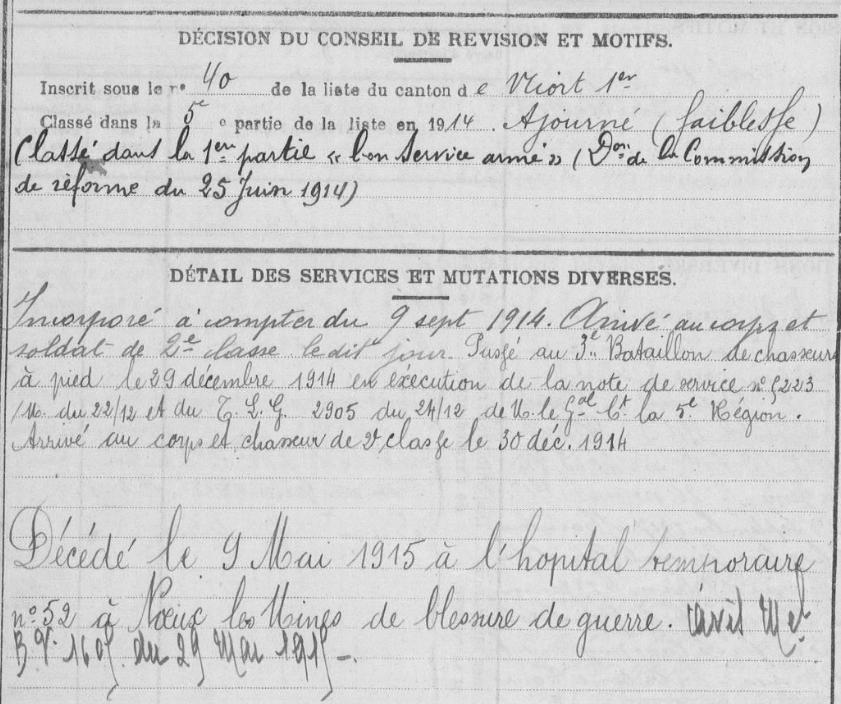 DÉCISION DU CONSEIL DE REVISION ET MOTIFS.
Inscrit sous le n° 40 de la liste du canton de Niort 1er
Classé dans la 5e e partie de la liste en 1914. Ajourné (faiblesse)
Classé dans la 1ere partie « bon service armé » (Don de la Commission
de réforme du 25 Juin 1914)
DÉTAIL DES SERVICES ET MUTATIONS DIVERSES.
Incorporé à compter du 9 sept 1914. Arrivé au corps et
soldat de 2e classe le dit jour. Passé au 3e Bataillon de chasseurs
à pied le 29 décembre 1914 en éxécution de la note de service n° 5223
/M. du 22/12 et du T.L.G. 2905 du 24/12 de M. le Gal Ct la 5e Région.
Arrivé au corps et chasseur de 2e classe le 30 déc. 1914
Décédé le 9 Mai 1915 à l'hopital temporaire
n° 52 à Nœux les Mines de blessure de guerre. (avis Mel
du 29 Mai 1915